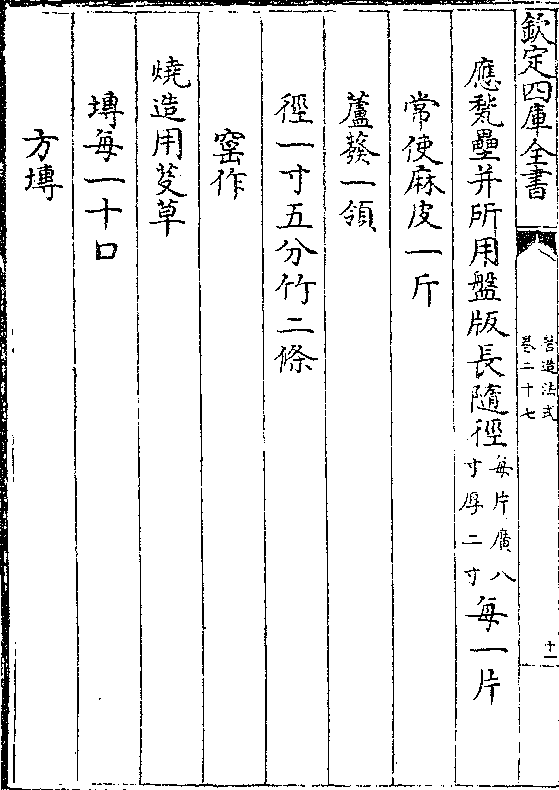 欽定四庫全書
營造法式
卷二十七
十一
應甃壘井所用盤版長隨徑每片廣八寸厚二寸每一片
常使麻皮一斤
蘆蕟一領
徑一寸五分竹二條
窰作
燒造用芟草
塼每一十口
方塼